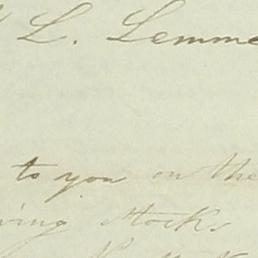 L. Lemme
to you on the
ing Stocks